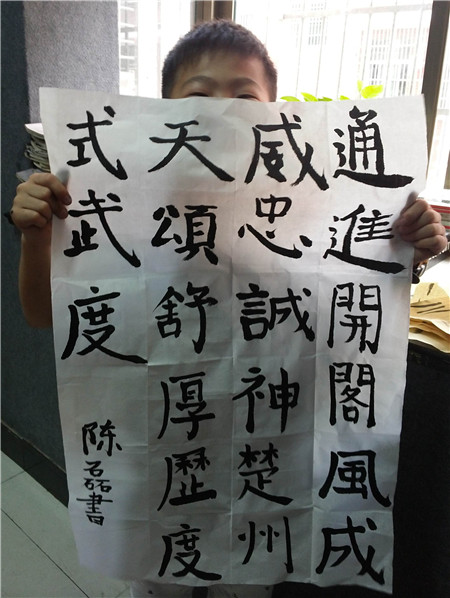 通進開閣風成
威忠誠神楚州
天頌舒厚歷度
式武度
陈磊書